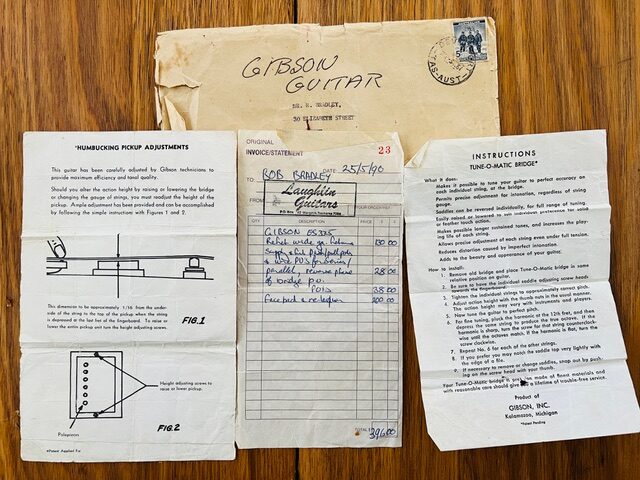 GIBSON
GUITAR
MR. R. BRADLEY,
30 ELIZABETH STREET
AUSTRALIA
5
"HUMBUCKING PICKUP ADJUSTMENTS
This guitar has been carefully adjusted by Gibson technicians to
provide maximum efficiency and tonal quality.
Should you alter the action height by raising or lowering the bridge
or changing the gauge of strings, you must readjust the height of the
pickup. Ample adjustment has been provided and can be accomplished
by following the simple instruction with Figures 1 and 2.
This dimension to be approximately 1/16 from the under-
side of the string to the top of the pickup when the string
is depressed at the last fret of the fingerboard. To raise or
lower the entire pickup unit turn the height adjusting screws.
FIG.1
Height adjusting screws to
raise or lower pickup.
Polepieces
FIG.2
Patent Applied For
ORIGINAL
INVOICE/STATEMENT
23
DATE 25/5/90
TO: BOB BRADLEY
FROM
Laughlin
Guitars
QTY DESCRIPTION PRICE $ c
GIBSON ES335
130 00
parallel, reverse phase
of bridge p.u. 28 00
Pots 38 00
200 00
TOTAL $ 396.00
INSTRUCTIONS
TUNE-O-MATIC BRIDGE*
What it does:
Makes it possible to tune your guitar to perfect accuracy on
each individual string, at the bridge.
Permits precise adjustment for intonation, regardless of string
gauge.
Saddles can be reversed individually, for full range of tuning.
Easily raised or lowered to suit individual preference for hard
or feather touch action.
Makes possible longer sustained tones, and increases the play-
ing life of each string.
Allows precise adjustment of each string even under full tension.
Reduces distortion caused by imperfect intonation.
Adds to the beauty and appearance of your guitar.
How to install:
1. Remove old bridge and place Tune-O-Matic Bridge in same
relative position on guitar.
2. Be sure to have the individual saddle adjusting screw heads
towards the fingerboard.
3. Tighten the individual strings to approximately correct pitch.
4. Adjust string height with the thumb nuts in the usual manner.
The action height may vary with instruments and players.
5. Now tune the guitar to perfect pitch.
6. For fine tuning, pluck the harmonic at the 12th fret, and then
depress the same string to produce the true octave. If the
harmonic is sharp, turn the screw for that string counterclock-
wise until the octaves match. If the harmonic is flat, turn the
screw clockwise.
7. Repeat No. 6 for each of the other strings.
8. If you prefer you may notch the saddle top very lightly with
the edge of a file.
9. If necessary to remove or change saddles, snap out by push-
ing on the screw head with your thumb.
Your Tune-O-Matic bridge is precision made of finest materials and
with reasonable care should give you a lifetime of trouble-free service.
Product of
GIBSON, INC.
Kalamazoo, Michigan
*Patent Pending